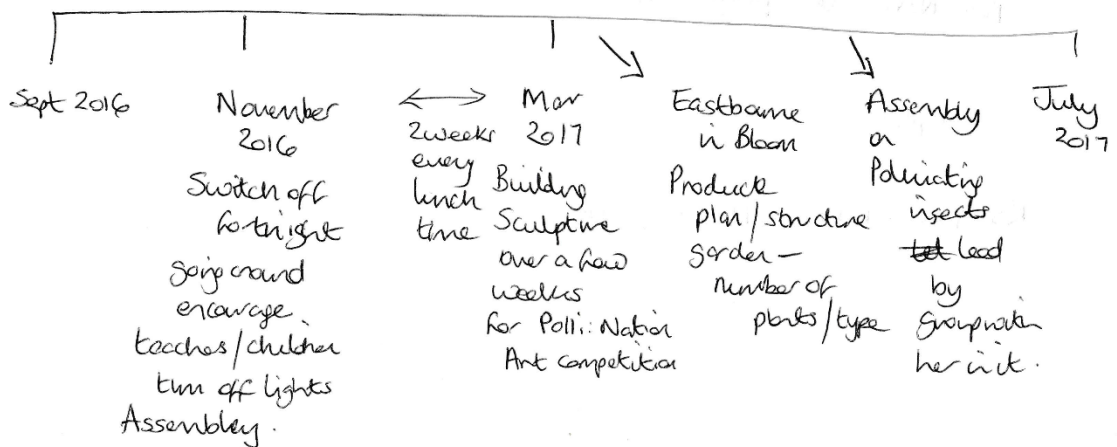 Sept 2016
November
2016
Switch off
fortnight
going around
encourage
teaches/children
turn off lights
Assembley.
2weeks
every
lunch
time
Mar
2017
Building
Sculpture
over a few
weeks
for Polli:Nation
Art competition
Eastbourne
in Bloom
Produce
plan/structure
garden –
number of
plants/type
Assembly
on
Pollinating
insects
lead
by
group with
her in it.
July
2017